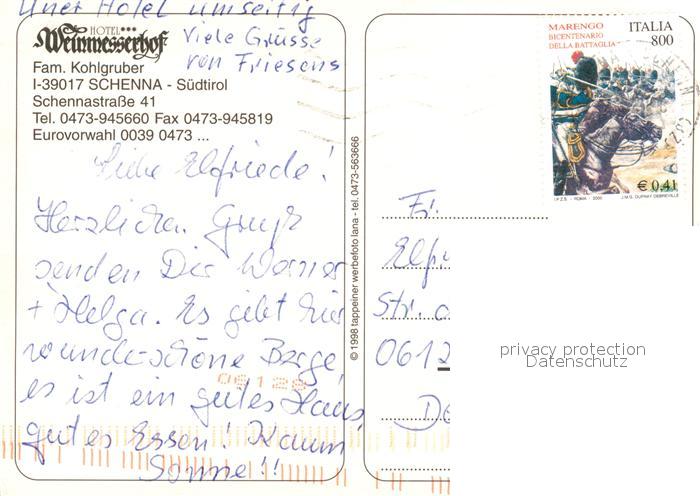 Uner Hotel umseitig
HOTEL***
Weinmesserhof
Viele Grüsse
von Friesens
Fam. Kohlgruber
I-39017 SCHENNA - Südtirol
Schennastraße 41
Tel. 0473-945660 Fax 0473-945819
Eurovorwahl 0039 0473 ...
Liebe Elfriede!
Herzlichen Gruß
senden Dir Werner
+ Helga. Es gibt hier
wunderschöne Berge,
es ist ein gutes Haus,
gutes Essen! Kaum
Sonne!!
06129
© 1998 tappeiner werbefoto lana - tel. 0473-563666
MARENGO
BICENTENARIO
DELLA BATTAGLIA
ITALIA
800
€ 0,41
I.P.Z.S. - ROMA - 2000
J.M.G. DUPRAY DEBREVILLE
Fr.
Elfri
Str. d
0612
De
privacy protection
Datenschutz